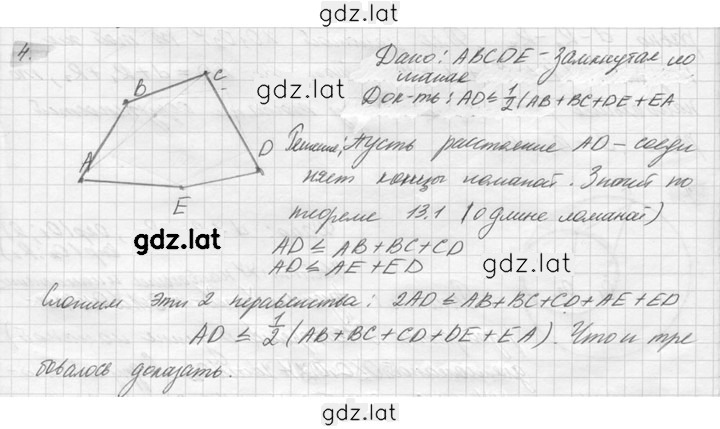 gdz.lat
4.
Дано: ABCDE – Замкнутая ло
маная
Док-ть: AD ≤ 1/2 (AB + BC + DE + EA
gdz.lat
B
C
A
D
E
Решение: Пусть расстояние AD – соеди
няет концы ломаной. Значит по
теореме 13.1 (о длине ломаной)
gdz.lat
AD ≤ AB + BC + CD
AD ≤ AE + ED
gdz.lat
Сложим эти 2 неравенства: 2AD ≤ AB + BC + CD + AE + ED
AD ≤ 1/2 (AB + BC + CD + DE + EA). Что и тре
бовалось доказать.
gdz.lat